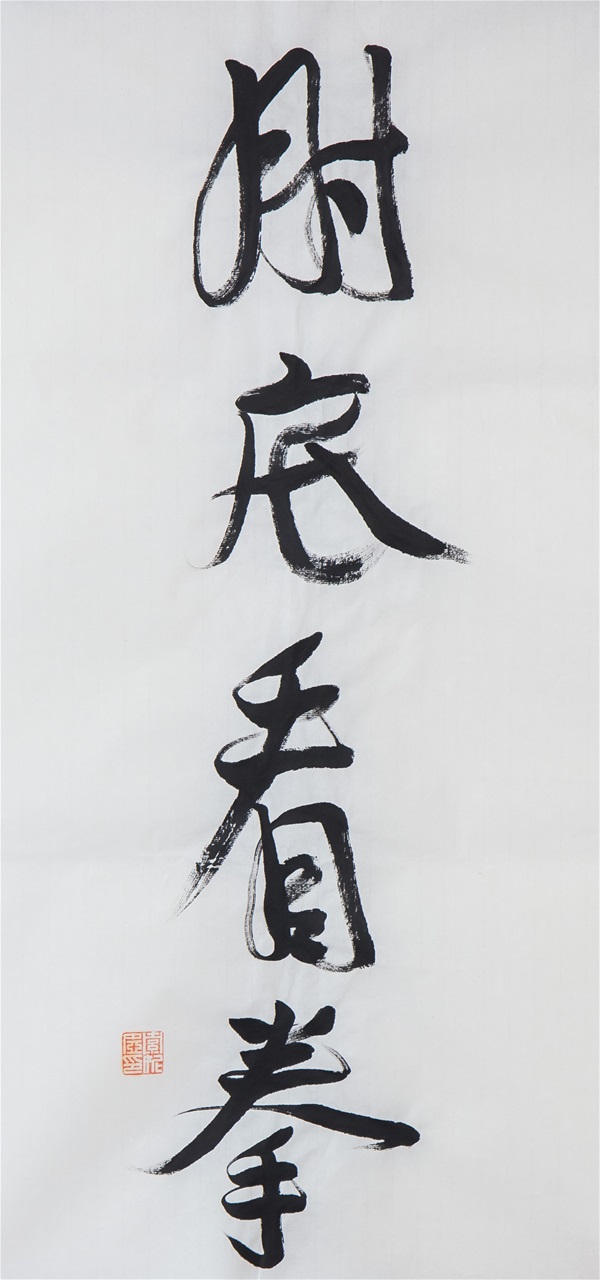 肘底看拳